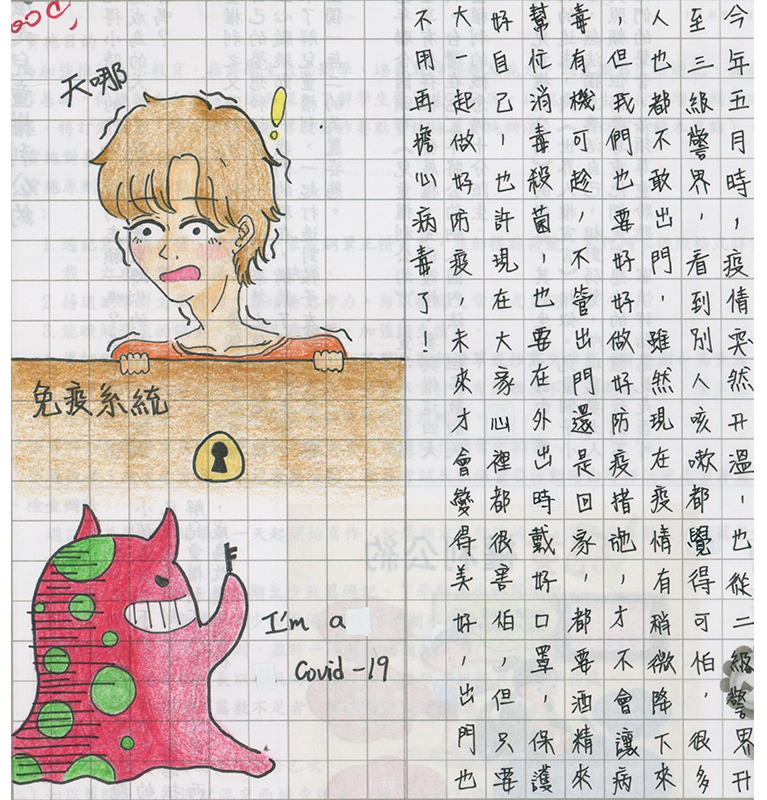 今年五月時，疫情突然升溫，也從二級警界升
至三級警界，看到別人咳嗽都覺得可怕，很多
人也都不敢出門，雖然現在疫情有稍微降下來
，但我們也要好好做好防疫措施，才不會讓病
毒有機可趁，不管出門還是回家，都要酒精來
幫忙消毒殺菌，也要在外出時戴好口罩，保護
好自己，也許現在大家心裡都很害怕，但只要
大一起做好防疫，未來才會變得美好，出門也
不用再擔心病毒了！
天哪
免疫系統
I'm a
Covid-19